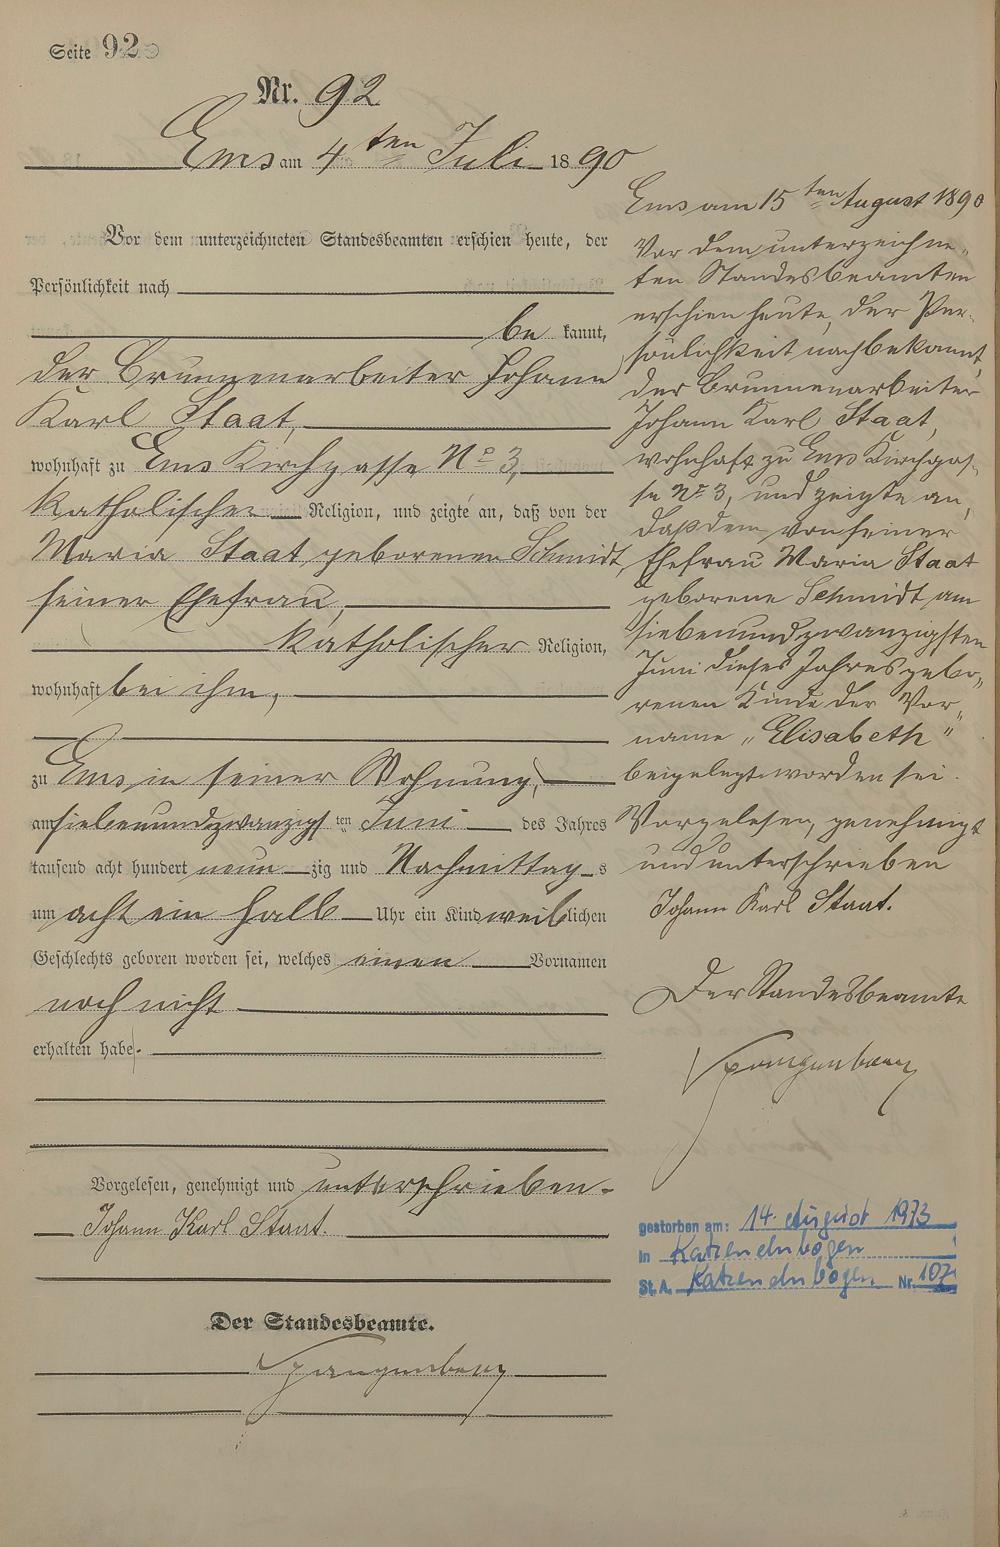 Seite 92
Nr. 92
Ems am 4ten Juli 1890
Vor dem unterzeichneten Standesbeamten erschien heute, der
Persönlichkeit nach
be kannt,
der Brunnenarbeiter Johann
Karl Staat,
wohnhaft zu Ems Kirchgasse No 3,
katholischer Religion, und zeigte an, daß von der
Maria Staat geborenen Schmidt,
seiner Ehefrau,
katholischer Religion,
wohnhaft bei ihm,
zu Ems in seiner Wohnung,
am siebenundzwanzigsten Juni des Jahres
tausend acht hundert neunzig und Nachmittags
um acht ein halb Uhr ein Kind weiblichen
Geschlechts geboren worden sei, welches einen Vornamen
noch nicht
erhalten habe.
Vorgelesen, genehmigt und unterschrieben.
Johann Karl Staat.
Der Standesbeamte.
Spangenberg
Ems am 15ten August 1890
Vor dem unterzeichne-
ten Standesbeamten
erschien heute, der Per-
sönlichkeit nach bekannt,
der Brunnenarbeiter
Johann Karl Staat,
wohnhaft zu Ems Kirchgas-
se No 3, und zeigte an,
daß dem von seiner
Ehefrau Maria Staat
geborene Schmidt am
siebenundzwanzigsten
Juni dieses Jahres gebo-
renen Kinde der Vor-
name „Elisabeth“
beigelegt worden sei.
Vorgelesen, genehmigt
und unterschrieben
Johann Karl Staat.
Der Standesbeamte
Spangenberg
gestorben am: 14. August 1973
in Katzenelnbogen
St. A. Katzenelnbogen Nr. 107